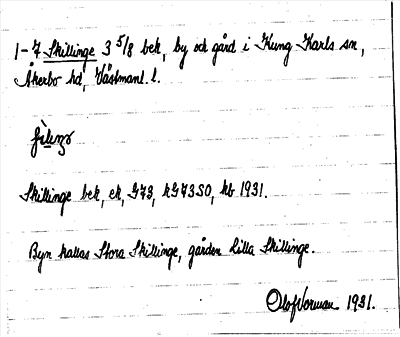 1-7 Skillinge 3 5/8 bek, by och gård i Kung Karls sn,
Åkerbo hd, Västmanl. l.
Skillinge bek, ek, G73, kG73SO, kb 1931.
Byn kallas Stora Skillinge, gården Lilla Skillinge.
Olof Norman 1931.